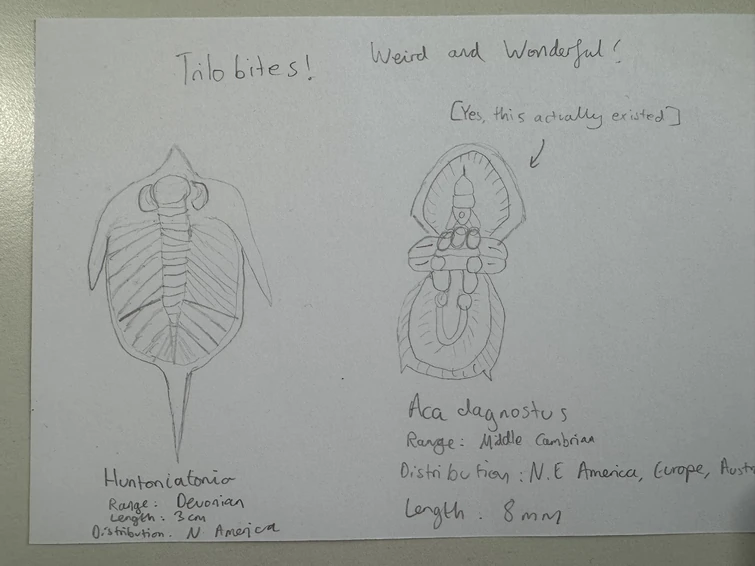 Trilobites! Weird and Wonderful!
[Yes, this actually existed]
Huntoniatonia
Range: Devonian
Length: 3cm
Distribution: N. America
Acadagnostus
Range: Middle Cambrian
Distribution: N.E America, Europe, Aust
Length: 8mm